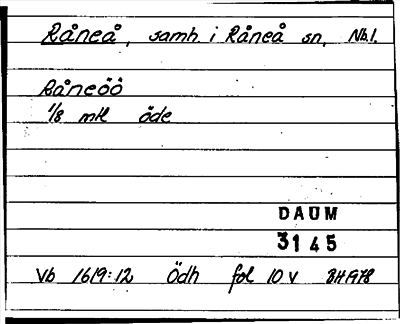 Råneå, samh. i Råneå sn, Nb.l.
Råneöö
1/8 mtl öde
DAUM
3145
Vb 1619:12 Ödh fol 10 v BH 1978